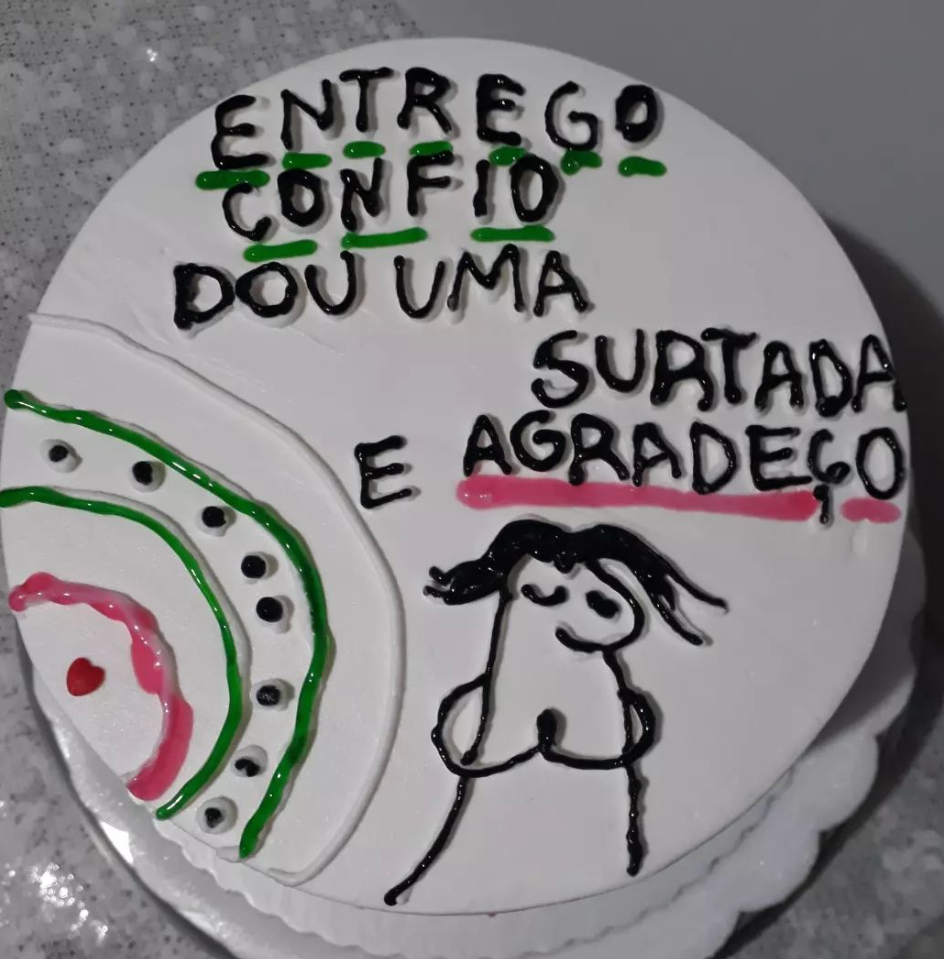 ENTREGO
CONFIO
DOU UMA
SURTADA
E AGRADEÇO